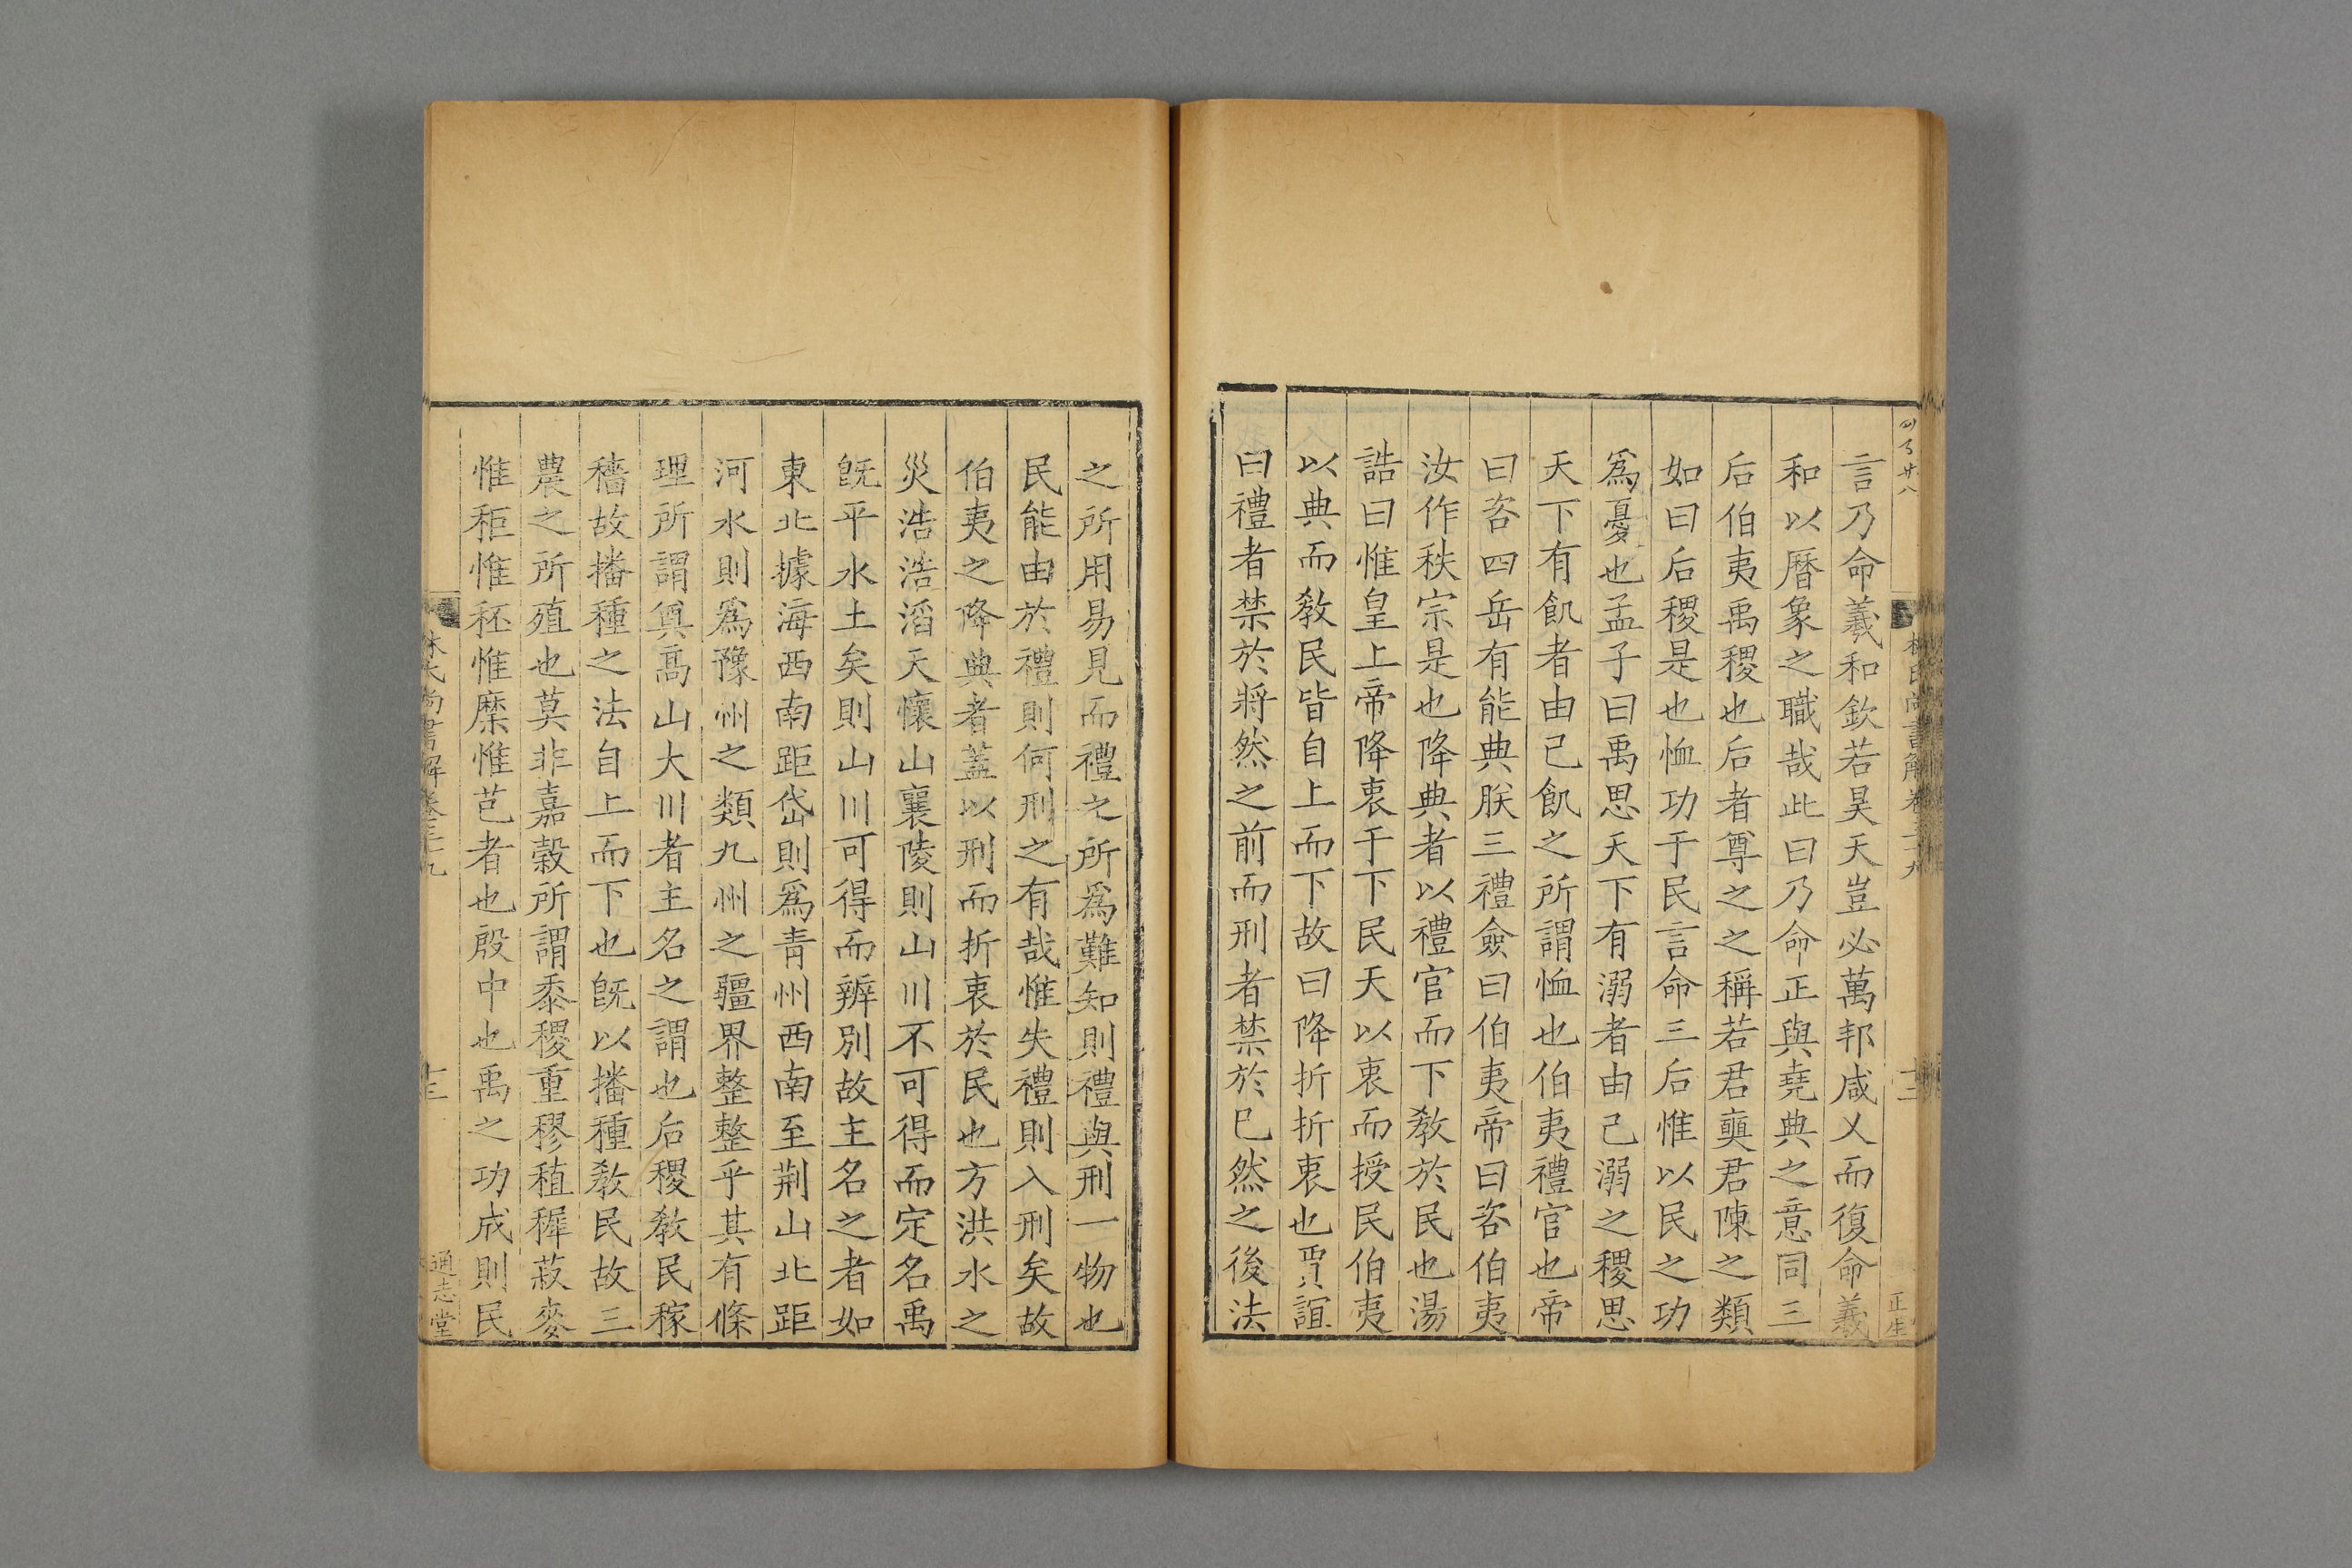 言乃命羲和欽若昊天豈必萬邦咸乂而復命羲
和以曆象之職哉此曰乃命正與堯典之意同三
后伯夷禹稷也后者尊之之稱若君奭君陳之類
如曰后稷是也恤功于民言命三后惟以民之功
爲憂也孟子曰禹思天下有溺者由己溺之稷思
天下有飢者由己飢之所謂恤也伯夷禮官也帝
曰咨四岳有能典朕三禮僉曰伯夷帝曰咨伯夷
汝作秩宗是也降典者以禮官而下教於民也湯
誥曰惟皇上帝降衷于下民天以衷而授民伯夷
以典而教民皆自上而下故曰降折折衷也賈誼
曰禮者禁於將然之前而刑者禁於已然之後法
之所用易見而禮之所爲難知則禮與刑一物也
民能由於禮則何刑之有哉惟失禮則入刑矣故
伯夷之降典者蓋以刑而折衷於民也方洪水之
災浩浩滔天懷山襄陵則山川不可得而定名禹
旣平水土矣則山川可得而辨別故主名之者如
東北據海西南距岱則爲青州西南至荆山北距
河水則爲豫州之類九州之疆界整整乎其有條
理所謂奠高山大川者主名之謂也后稷教民稼
穡故播種之法自上而下也旣以播種教民故三
農之所殖也莫非嘉穀所謂黍稷重穋稙稺菽麥
惟秬惟秠惟穈惟芑者也殷中也禹之功成則民
林氏尚書解卷三十九
十三
通志堂
林氏尚書解卷三十九
十二
正生